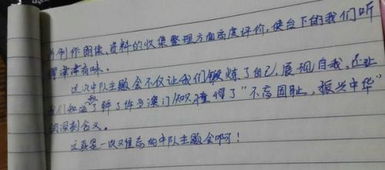 制作图像、资料的收集整理方面高度评价，使台下的我们听
得津津有味。
这次中队主题会不仅让我们锻炼了自己，展现自我，还让
我们知道了许了许多澳门知识，懂得了“不忘国耻，振兴中华”
的深刻含义。
这真是一次难忘的中队主题会啊！